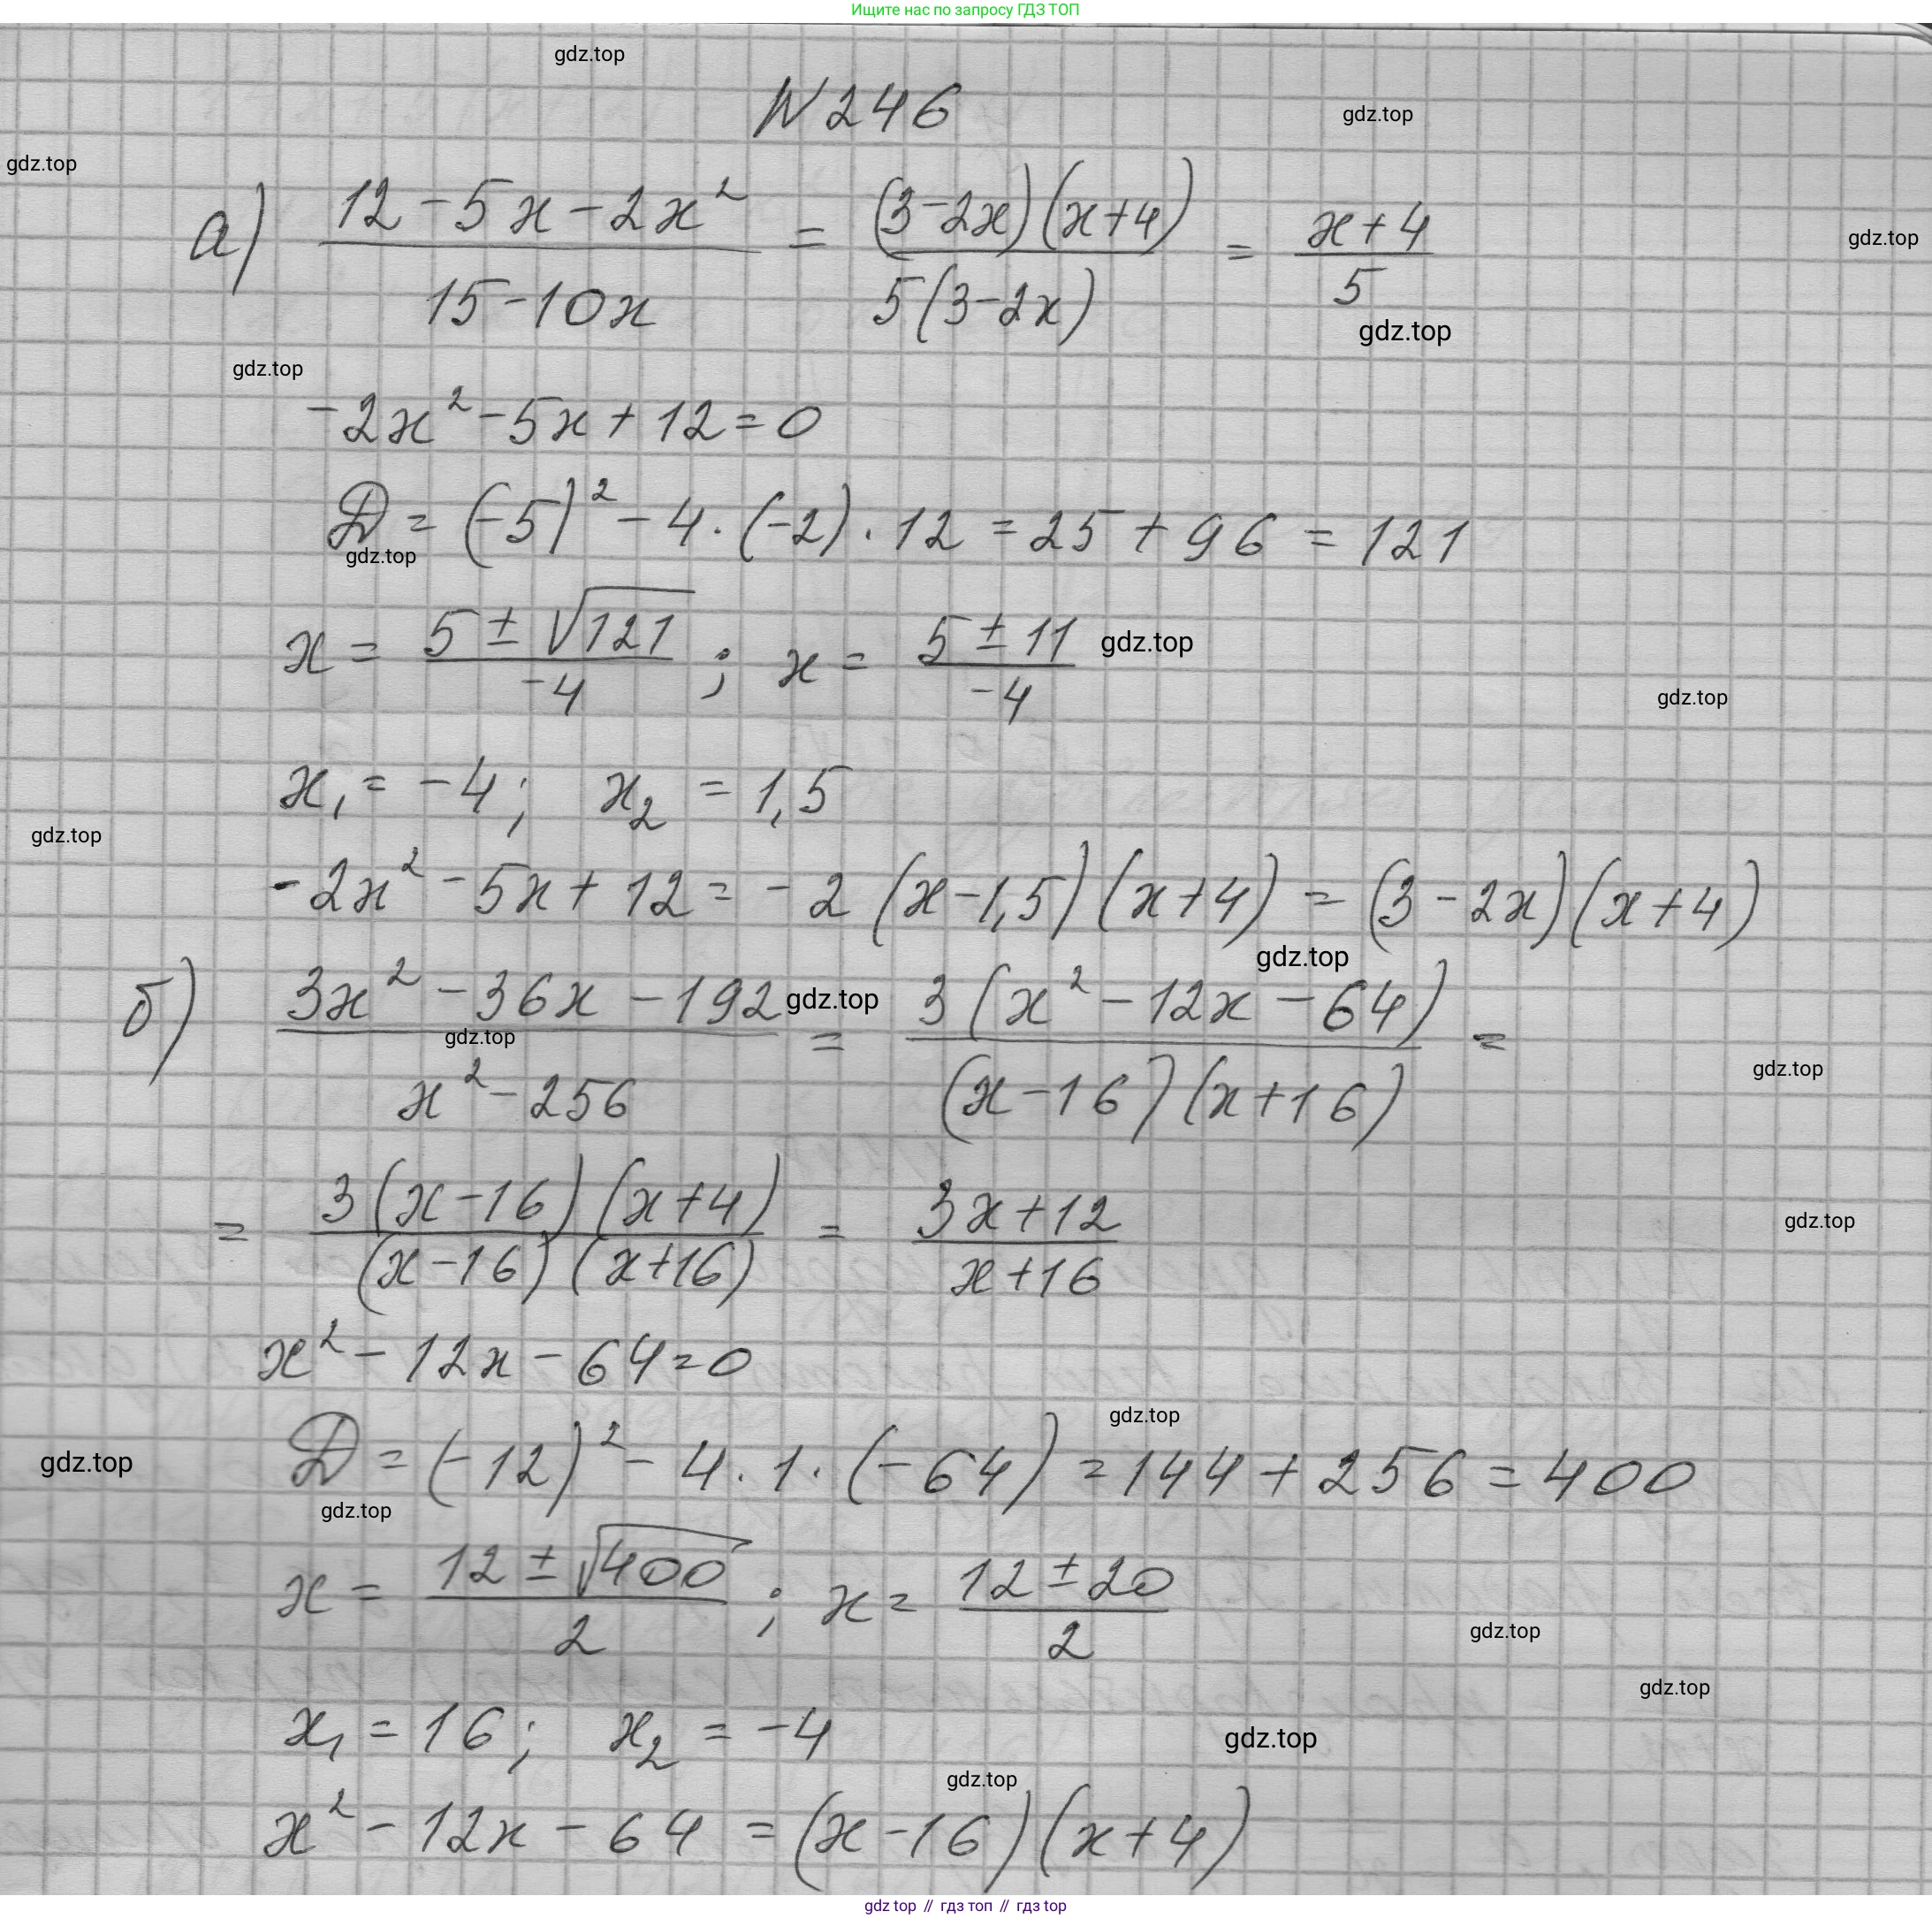 Ищите нас по запросу ГДЗ ТОП
gdz.top
N 246
gdz.top
gdz.top
а) (12 - 5x - 2x²)/(15 - 10x) = ((3 - 2x)(x + 4))/(5(3 - 2x)) = (x + 4)/5
gdz.top
gdz.top
gdz.top
-2x² - 5x + 12 = 0
D = (-5)² - 4 · (-2) · 12 = 25 + 96 = 121
gdz.top
x = (5 ± √121)/(-4) ; x = (5 ± 11)/(-4)
gdz.top
gdz.top
x₁ = -4; x₂ = 1,5
gdz.top
-2x² - 5x + 12 = -2 (x - 1,5)(x + 4) = (3 - 2x)(x + 4)
gdz.top
б) (3x² - 36x - 192)/(x² - 256) = (3(x² - 12x - 64))/((x - 16)(x + 16)) =
gdz.top
gdz.top
gdz.top
= (3(x - 16)(x + 4))/((x - 16)(x + 16)) = (3x + 12)/(x + 16)
gdz.top
x² - 12x - 64 = 0
gdz.top
D = (-12)² - 4 · 1 · (-64) = 144 + 256 = 400
gdz.top
gdz.top
x = (12 ± √400)/2 ; x = (12 ± 20)/2
gdz.top
gdz.top
x₁ = 16; x₂ = -4
gdz.top
gdz.top
x² - 12x - 64 = (x - 16)(x + 4)
gdz top // гдз топ // гдз top